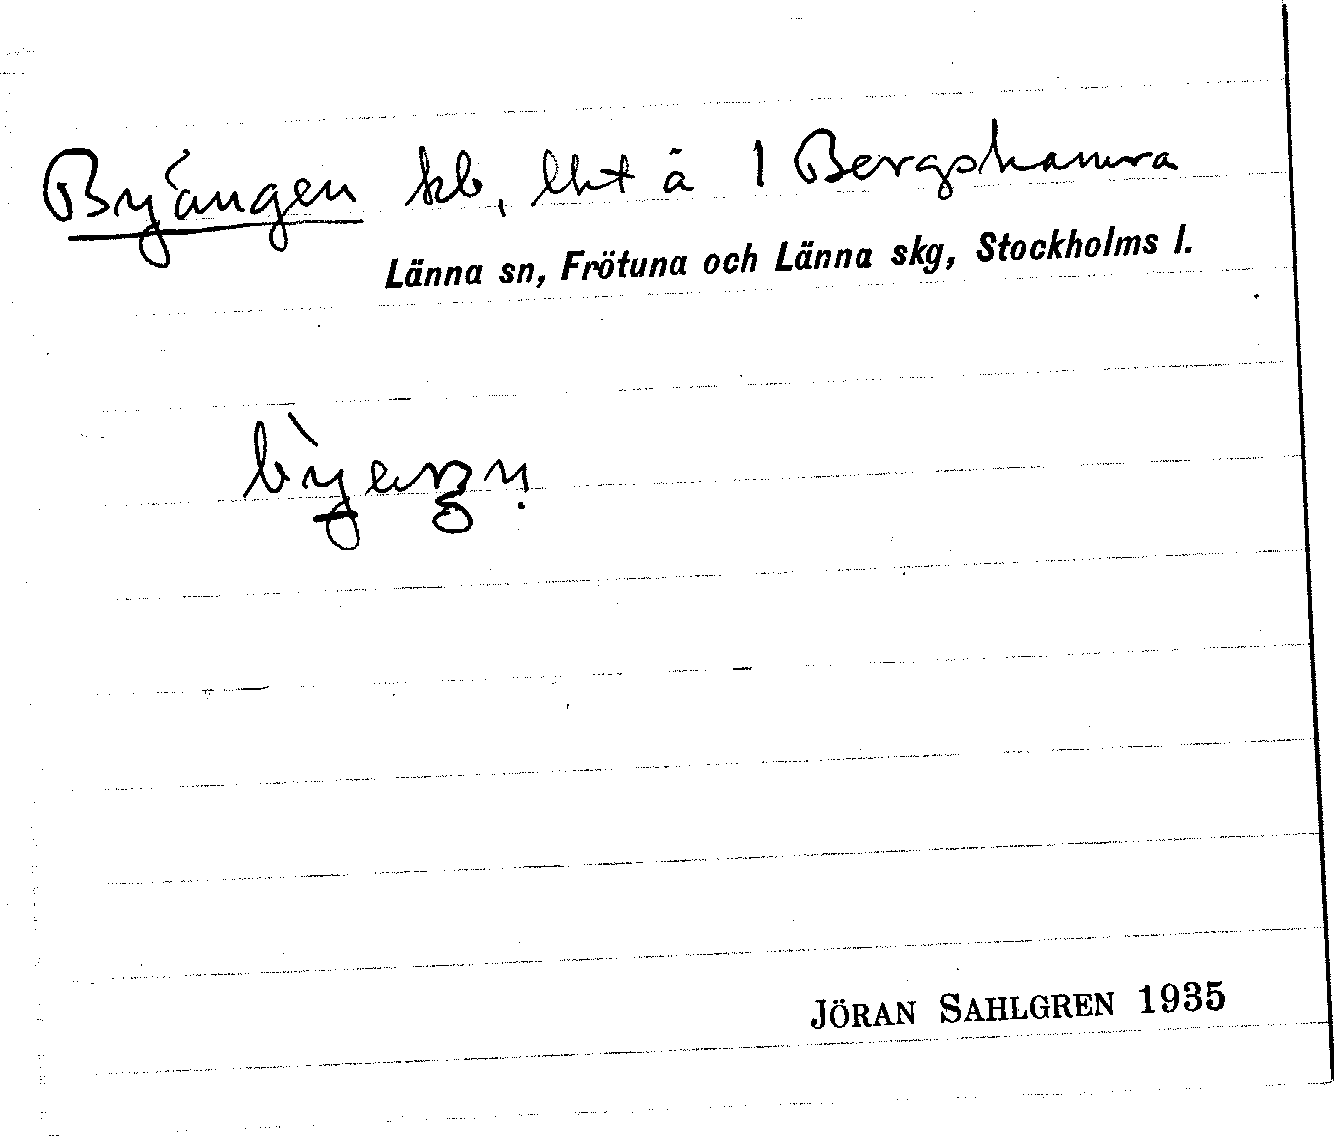 Byängen kb, lht å 1 Bergshamra
Länna sn, Frötuna och Länna skg, Stockholms l.
JÖRAN SAHLGREN 1935